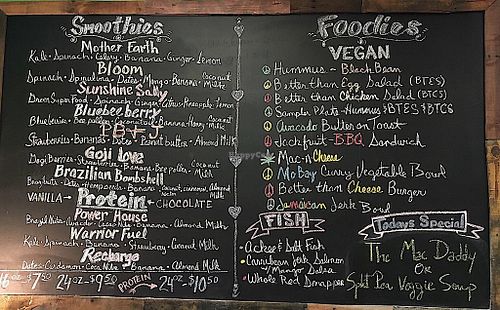 Smoothies
Mother Earth
Kale • Spinach • Celery • Banana • Ginger • Lemon
Bloom
Spinach • Spirulina • Dates • Mango • Banana • Coconut Milk
Sunshine Sally
Spinach • Ginger • Citrus • Pineapple • Lemon
Blueberry
Blueberries • Bee pollen • Coconut • Banana • Honey • Milk
P.B + J
Strawberries • Bananas • Dates • Peanut butter • Almond Milk
Goji Love
Goji Berries • Strawberries • Banana • Bee pollen • Coconut Milk
Brazilian Bombshell
Dates • Hemp seeds • Banana • Coconut, Almond Milk
VANILLA → Protein ← CHOCOLATE
Power House
Brazil Nuts • Cacao Nibs • Banana • Almond Milk
Warm me!
Kale • Spinach • Banana • Strawberry • Almond Milk
Recharge
Dates • Coco Nibs • Banana • Almond Milk
16 oz $7.50 24 oz - $9.50 PROTEIN → 24 oz - $10.50
Foodies
VEGAN
Hummus - Black Bean
Better than Egg Salad (BTES)
Better than Chicken Salad (BTCS)
Sampler Plate - Hummus $BTES $BTCS
Avocado Butter on Toast
Jackfruit - BBQ Sandwich
Mac-n Cheese
Mo'Bay Curry Vegetable Bowl
Better than Cheese Burger
Jamaican Jerk Bowl
FISH
Ackee & Salt Fish
Carribean Jerk Salmon
w/ Mango Salsa
Whole Red Snapper
Todays Special
The Mac Daddy
OR
Split Pea Veggie Soup